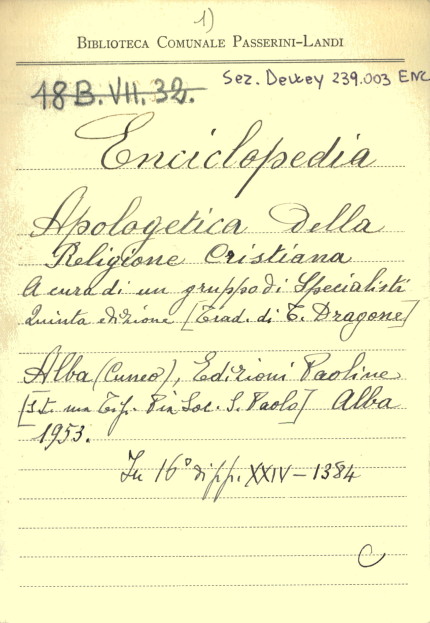 1)
BIBLIOTECA COMUNALE PASSERINI-LANDI
18 B. VII. 32.
Sez. Dewey 239.003 ENC
Enciclopedia
Apologetica Della
Religione Cristiana
A cura di un gruppo di Specialisti
Quinta edizione [Trad. di T. Dragone]
Alba (Cuneo), Edizioni Paoline
Tip. Pia Soc. S. Paolo] Alba
1953.
In 16° di pp. XXIV - 1384
C